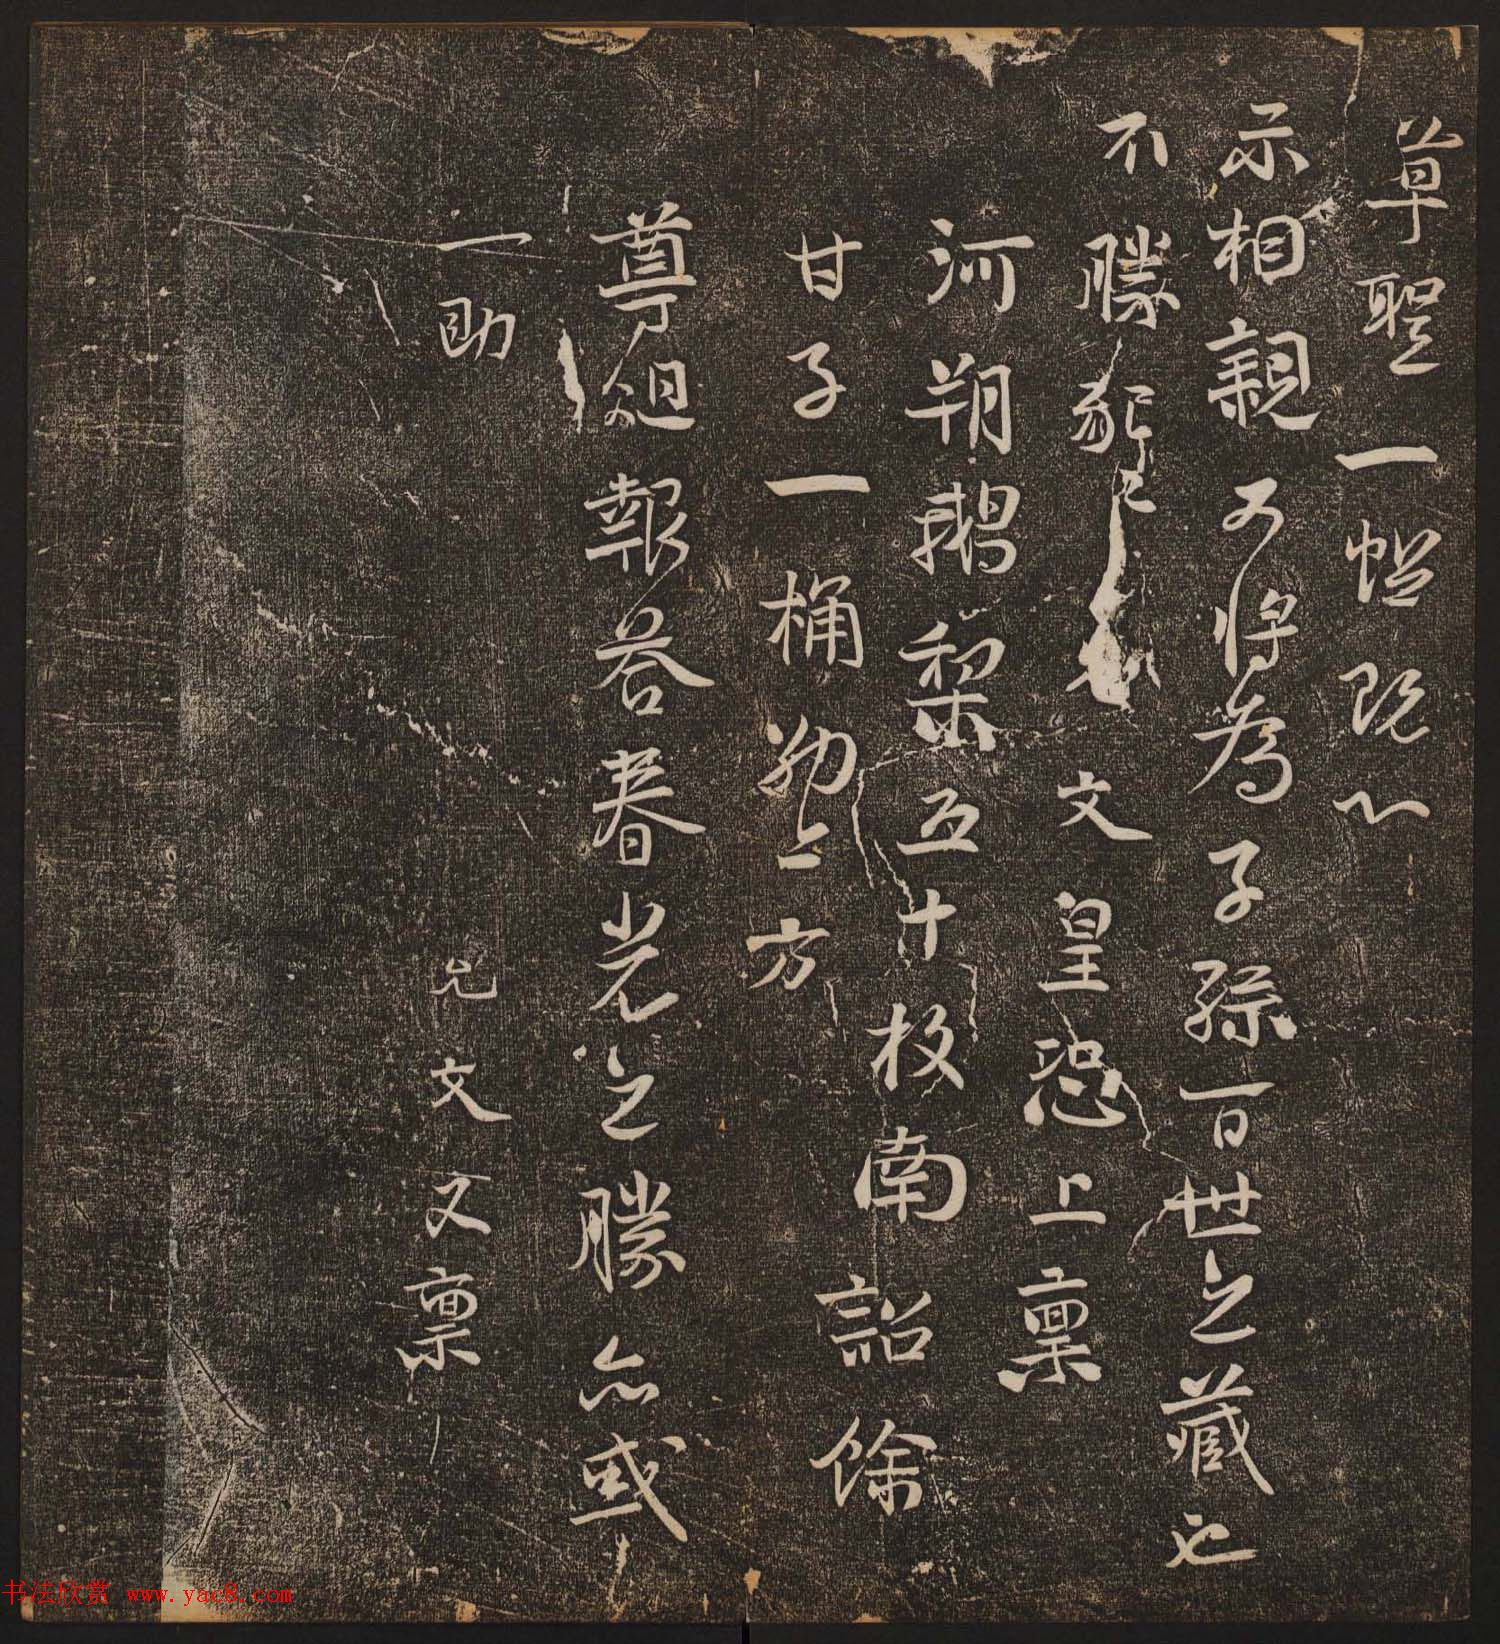 草聖一

示相親 將為子孫百世之藏也
不勝 文皇恐上稟
河朔鵝梨五十枚南
甘子一桶 方詔餘
尊俎報答春光之勝亦或
一助
允文又稟
书法欣赏 www.yac8.com